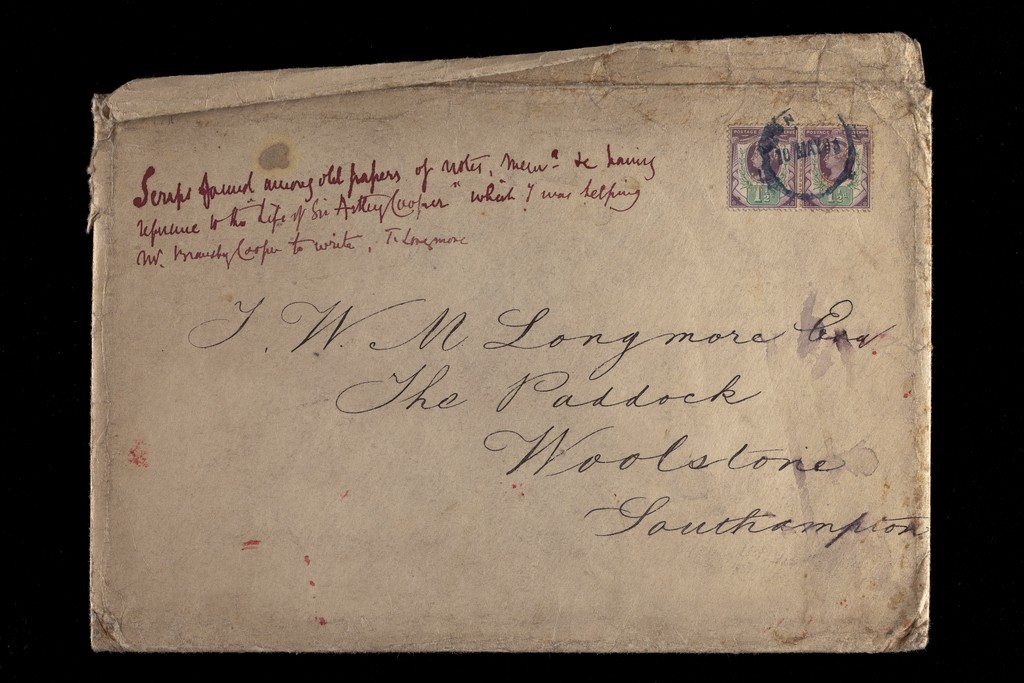 Scraps found among old papers of notes, mem.ª &c having
refrence to the "Life of Sir Astley Cooper" which I was helping
Mr. Bransby Cooper to write, T. Longmore
POSTAGE POSTAGE
10 MAY 93
1½d 1½d
T. W. M Longmore Esq
The Paddock
Woolstone
Southampton